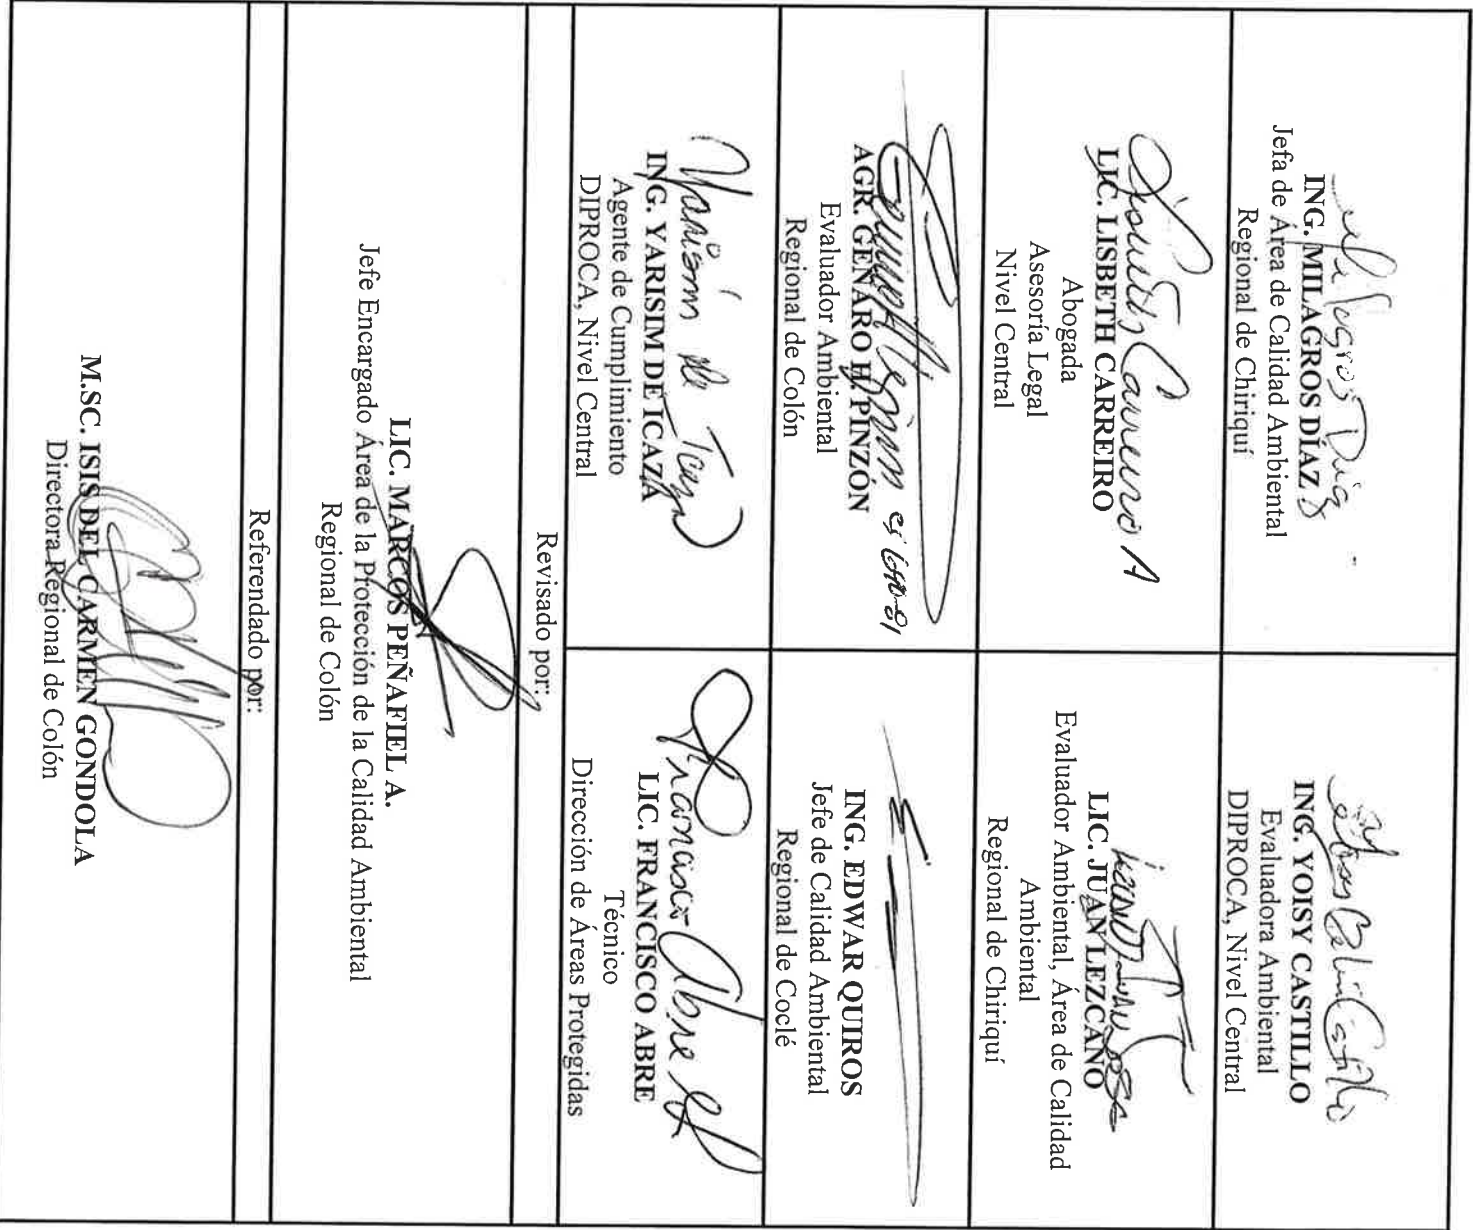 Milagros Díaz
ING. MILAGROS DÍAZ
Jefa de Área de Calidad Ambiental
Regional de Chiriquí
Castillo
ING. YOISY CASTILLO
Evaluadora Ambiental
DIPROCA, Nivel Central
Lisbeth Carreiro A
LIC. LISBETH CARREIRO
Abogada
Asesoría Legal
Nivel Central
LIC. JUAN LEZCANO
Evaluador Ambiental, Área de Calidad
Ambiental
Regional de Chiriquí
AGR. GENARO H. PINZÓN
Evaluador Ambiental
Regional de Colón
ING. EDWAR QUIROS
Jefe de Calidad Ambiental
Regional de Coclé
Yarisim de Icaza
ING. YARISIM DE ICAZA
Agente de Cumplimiento
DIPROCA, Nivel Central
Francisco Abre
LIC. FRANCISCO ABRE
Técnico
Dirección de Áreas Protegidas
Revisado por:
LIC. MARCOS PEÑAFIEL A.
Jefe Encargado Área de la Protección de la Calidad Ambiental
Regional de Colón
Referendado por:
M.SC. ISIS DEL CARMEN GONDOLA
Directora Regional de Colón